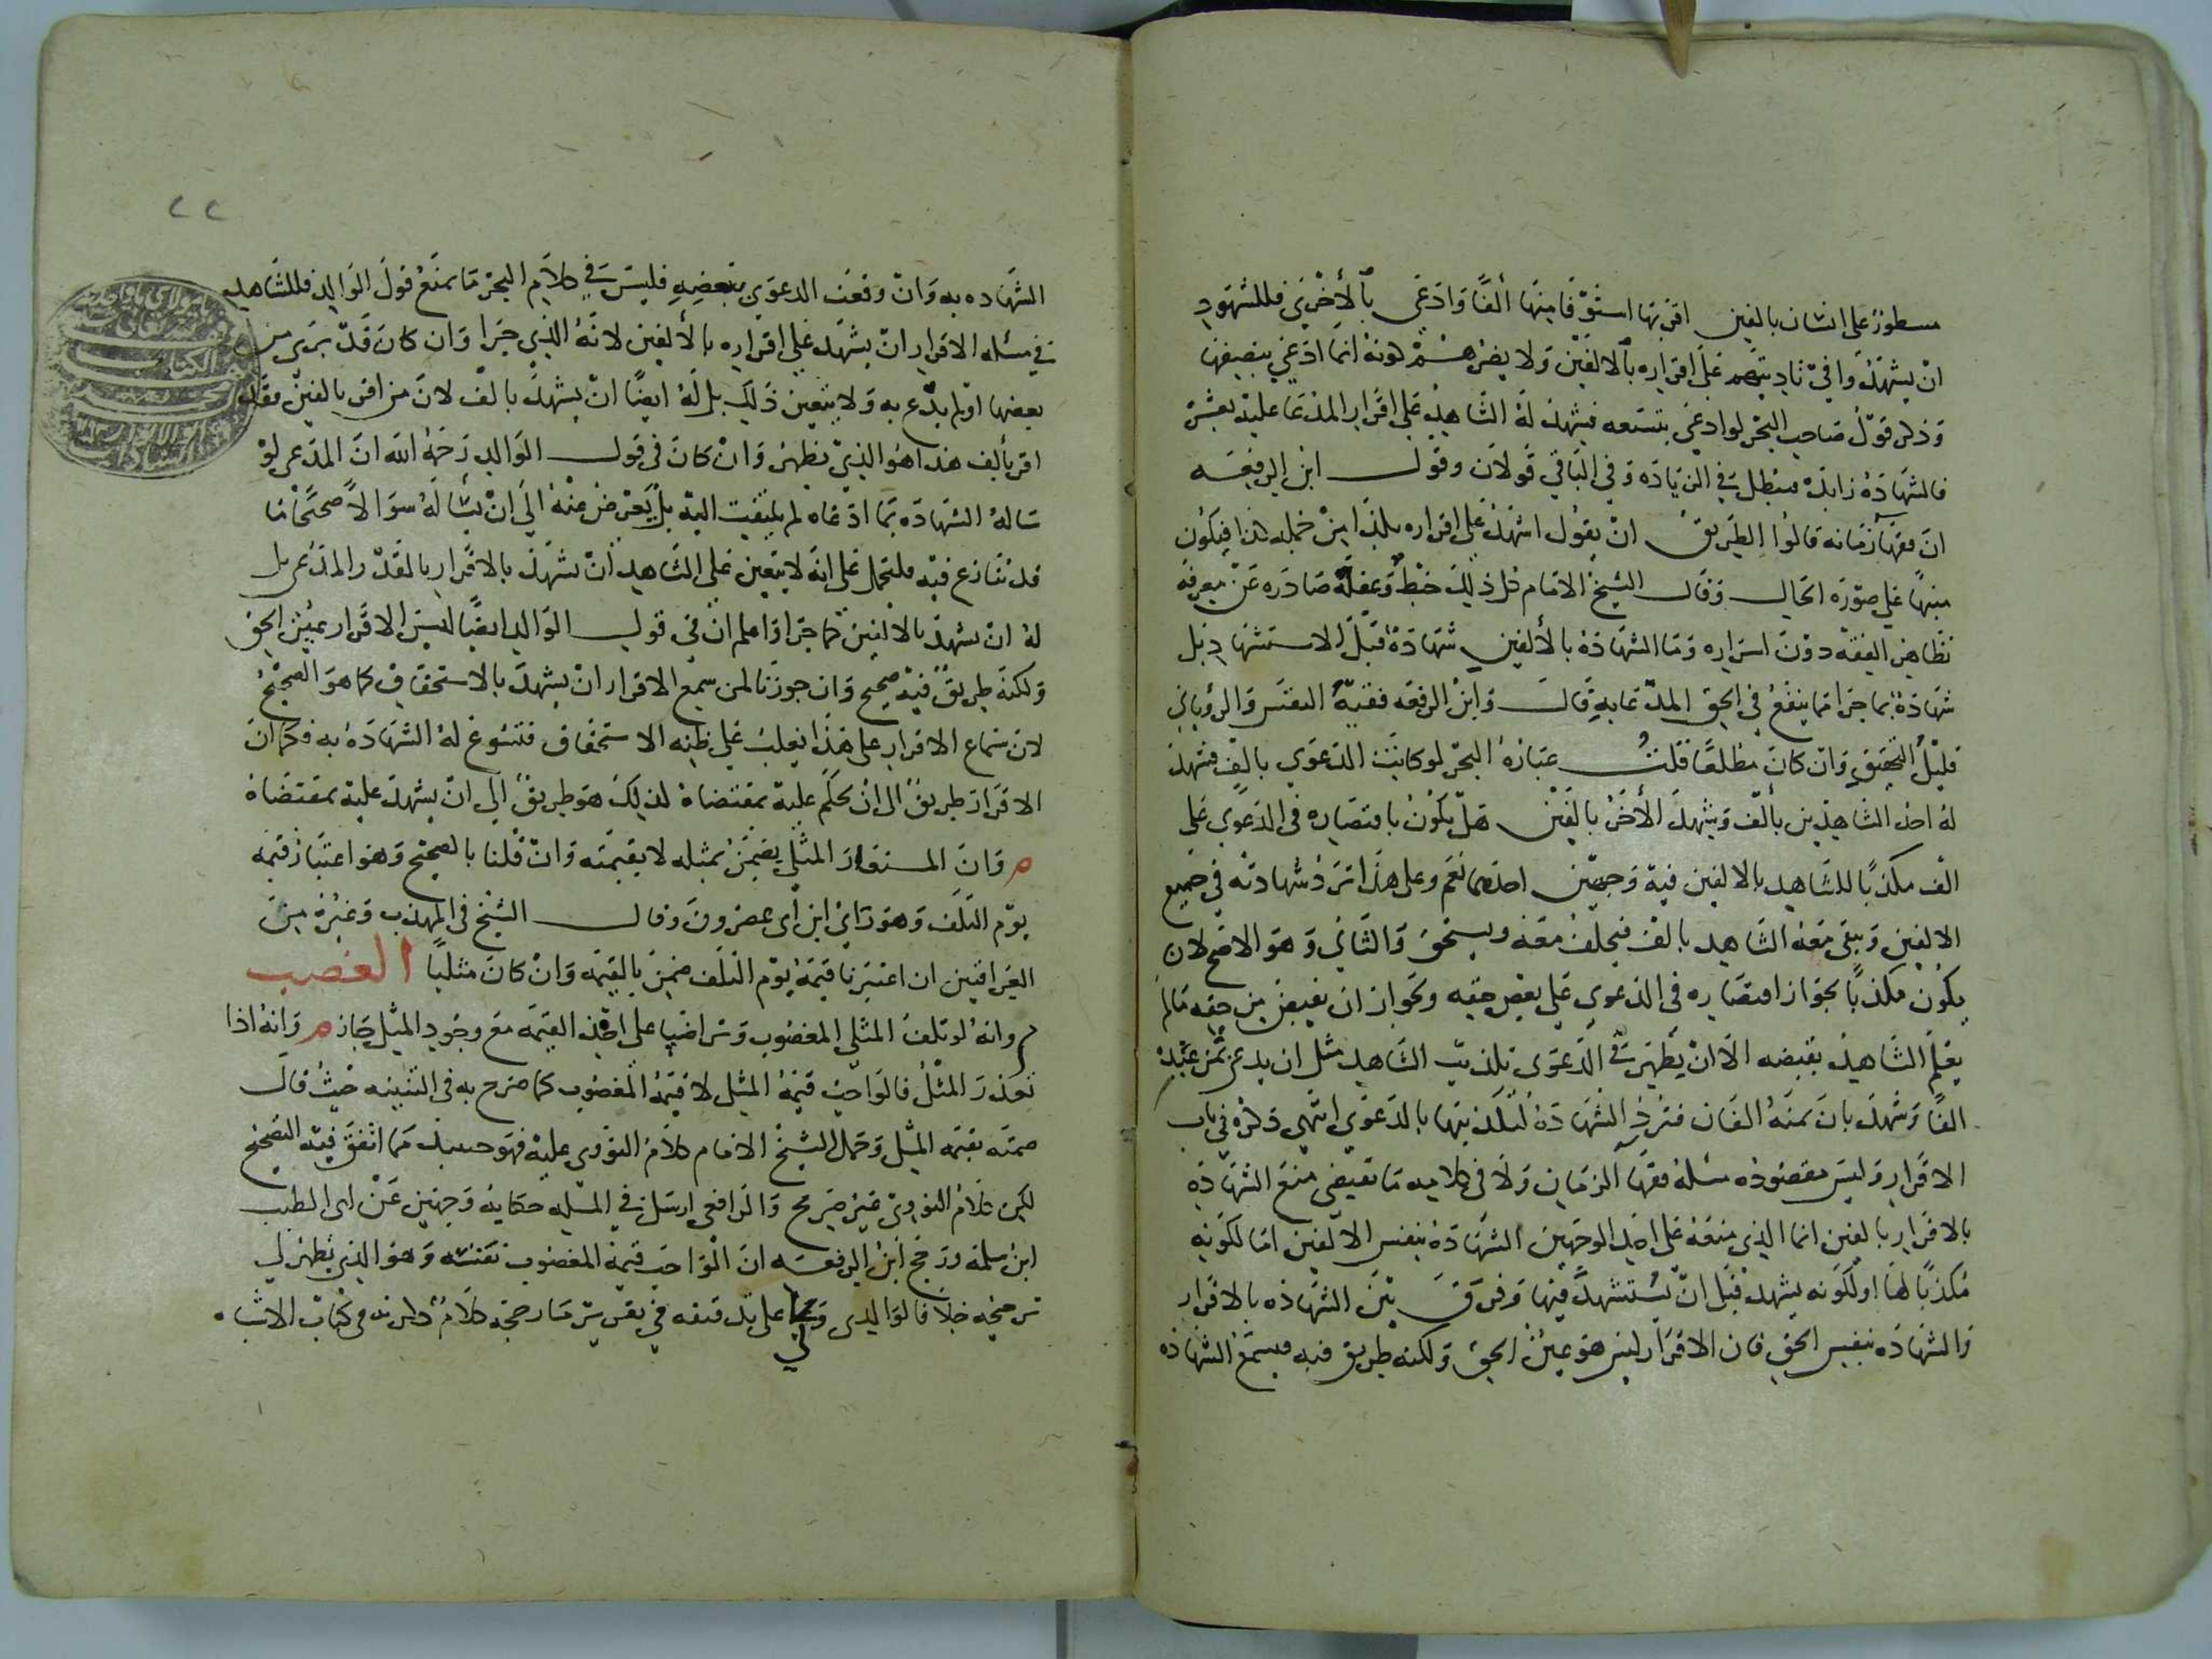 مسطور على انسان بالفين اقر بها استوفا منها ألفًا وادعى بالأخرى فللشهود
ان يشهدوا في تاديتهم على اقراره بالالفين ولا يضرهم كونه انما ادعى بنصيفها
وذكر قول صاحب البحر لو ادعى بتسعه فشهد له الشاهد على اقرار المدعا عليه بعشرة
فالشهادة زايدة فتبطل في الزياده وفي الباقي قولان وقول ابن الرفعه
ان فقها زمانه قالوا الطريق ان يقول اشهد على اقراره بكذا من جمله كذا فيكون
منبهًا على صورة الحال وقال الشيخ الامام كل ذلك خبط وغفلة صادره عن معرفة
بظاهر الفقه دون اسراره وما الشهادة بالألفين شهادة قبل الاستشهاد بل
شهادة بما جرا مما ينفع في الحق المدعا به قال وابن الرفعه فقيه النفس والروياني
قليل التحقيق وان كان مطلعًا قلت عبارة البحر لو كانت الدعوى بالف فشهد
له احد الشاهدين بألف ويشهد الأخر بالفين هل يكون باقتصاره في الدعوى على
الف مكذبًا للشاهد بالالفين فيه وجهين احدهما نعم وعلى هذا ترد شهادته في جميع
الالفين ويبقى معه الشاهد بالف فيحلف معه ويستحق والثاني وهو الاصح لان
يكون مكذبًا بجواز اقتصاره في الدعوى على بعض حقه وبجواز ان يقبض من حقه مالم
يعلم الشاهد بقبضه الا ان يظهر في الدعوى تكذيب الشاهد مثل ان يدعى ثمن عبده
الفًا وشهد بان ثمنه الفان فترد الشهادة لتكذيبها بالدعوى انتهى ذكره في باب
الاقرار وليس مقصوده مسله فقها الزمان ولا في كلامه ما تقتضى منع الشهادة
بالاقرار بالفين انما الذي منعه على احد الوجهين الشهادة بنفس الالفين اما لكونه
مكذبًا لها او لكونه يشهد قبل ان يستشهد فيها وفرق بين الشهاده بالاقرار
والشهاده بنفس الحق فان الاقرار ليس هو عين الحق ولكنه طريق فيه فيسمع الشهاده
٢٢
الشهاده به وان وقعت الدعوى ببعضه فليس في كلام البحر ما يمنع قول الوالد فللشاهد
في مسله الاقرار ان يشهد على اقراره بالألفين لانه الذي جرا وان كان قد برى من
بعضها او لم يدع به ولا يتعين ذلك بل له ايضًا ان يشهد بالف لان من اقر بالفين فقد
اقر بألف هذا هو الذي يظهر وان كان في قول الوالد رحمه الله ان المدعى لو
ساله الشهاده بما ادعاه لم يلتفت اليه بل يعرض عنه الى ان يسأله سوالًا صحيحًا ما
قد ننازع فيه فلتحمل على انه لا يتعين على الشاهد ان يشهد بالاقرار بالقدر المدعى بل
له ان يشهد بالالفين كما جرا واعلم ان في قول الوالد ايضًا ليس الاقرار عين الحق
ولكنه طريق فيه صحيح وان جوزنا لمن سمع الاقرار ان يشهد بالاستحقاق كما هو الصحيح
لان سماع الاقرار على هذا يغلب على ظنه الاستحقاق فتسوغ له الشهادة به فكما ان
الاقرار طريق الى ان يحكم عليه بمقتضاه لذلك هو طريق الى ان يشهد عليه بمقتضاه
م وان المستعار المثلى يضمن بمثله لا بقيمته وان قلنا بالصحيح وهو اعتبار قيمه
يوم التلف وهو راي ابن أبى عصرون وقال الشيخ في المهذب وغيره من
العراقيين ان اعتبرنا قيمة يوم التلف ضمن بالقيمه وان كان مثليًا الغصب
م وانه لو تلف المثلى المغصوب وتراضيا على اخذ القيمه مع وجود المثل جاز م وانه اذا
تعذر المثل فالواجب قيمة المثل لا قيمة المغصوب كما صرح به في التنبيه حيث قال
ضمنه بقيمه المثل وحمل الشيخ الامام كلام النووى عليه فهو حسبك مما اتفق فيه التصحيح
لكن كلام النووى غير صريح والرافعى ارسل في المسله حكاية وجهين عن ابى الطيب
ابن سلمة ورجح ابن الرفعه ان الواجب قيمة المغصوب نفسه وهو الذي يظهر لى
ترجيحه خلافا لوالدى على تدقيقه في تقرير ما رجحه كلام ذكرته في كتاب الاشباه